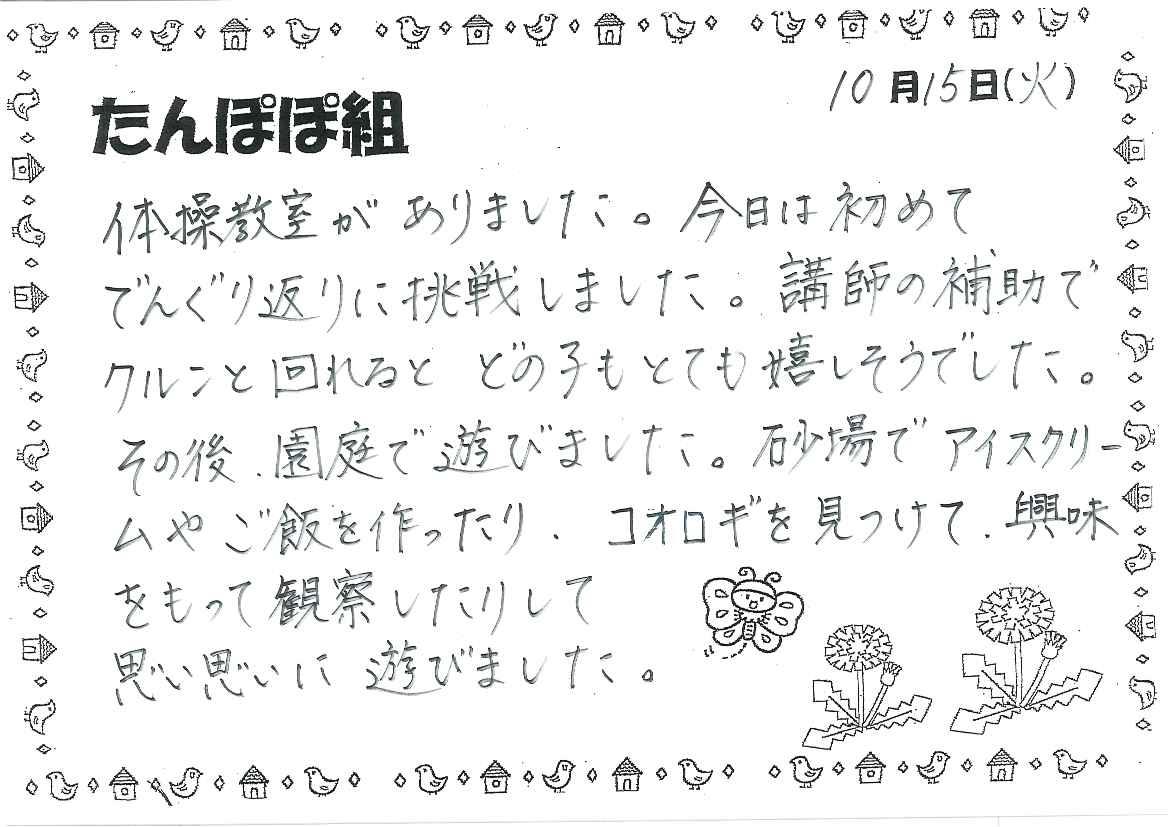 10月15日(火)
たんぽぽ組
体操教室がありました。今日は初めて
でんぐり返りに挑戦しました。講師の補助で
クルンと回れると どの子もとても嬉しそうでした。
その後、園庭で遊びました。砂場でアイスクリー
ムやご飯を作ったり、コオロギを見つけて、興味
をもって観察したりして
思い思いに遊びました。